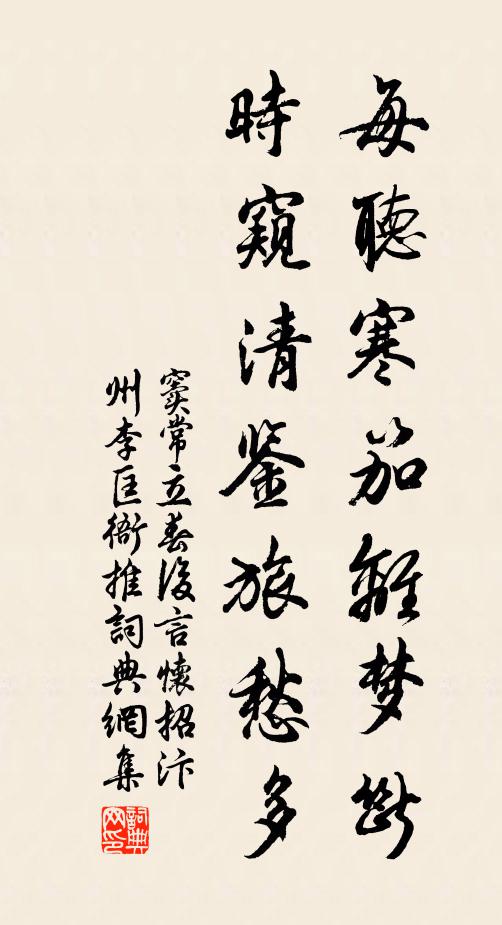 每聽寒笳離梦斷
時窺清鉴旅愁多
窦常立春後言懷招汴
州李匡衙推詞典網集
詞典網印